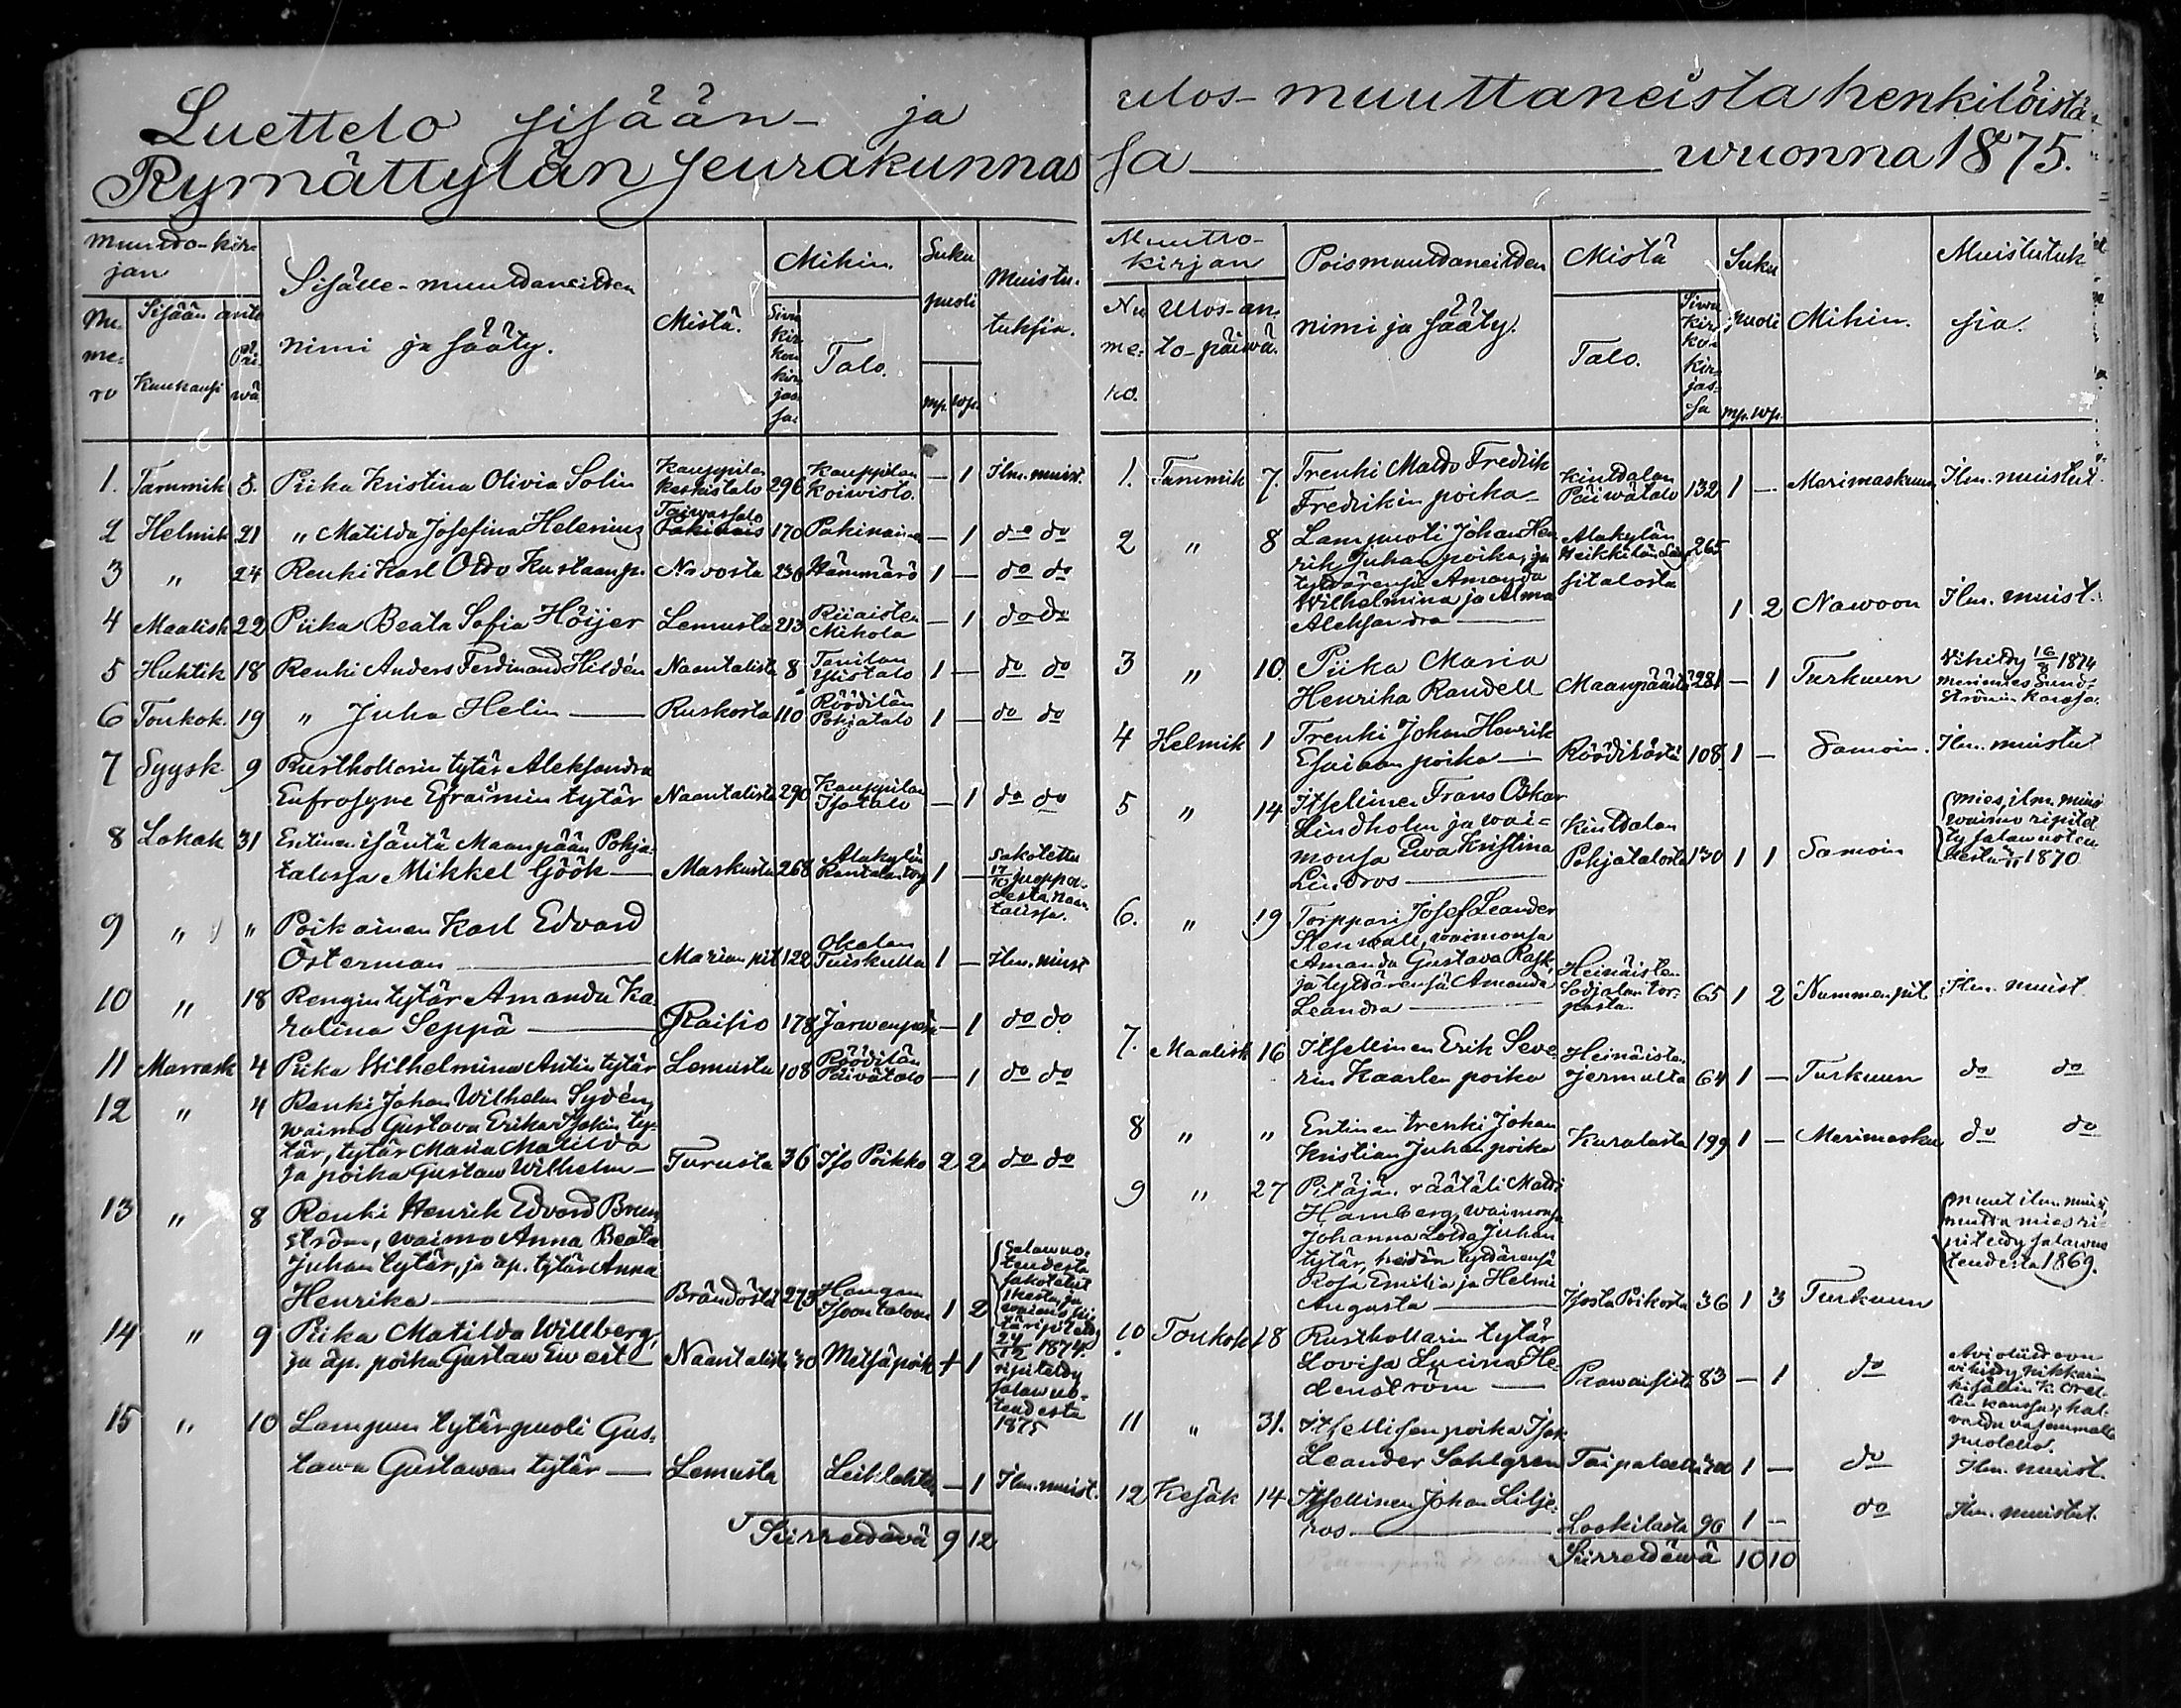 Luettelo sisään- ja ulos-muuttaneista henkilöistä
Rymättylän seurakunnassa wuonna 1875.
Muutto-kirjan
Nu-
me-
ro
Sisään anto
Kuukausi
Päi-
wä
Sisälle-muuttaneitten
nimi ja sääty.
Mistä.
Mihin.
Siwu
kir-
kon
kir-
jas-
sa.
Talo.
Suku
puoli
mp. wp.
Muistu-
tuksia.
1. Tammik 8. Piika Kristina Olivia Solin Kauppilan Keskitalo 296 Kauppilan Koiwisto. — 1 Ilm. muist.
2 Helmik 21 " Matilda Josefina Helenius Taiwassalo 170 Pakinainen — 1 do do
3 " 24 Renki Karl Otto Kustaanp. Nvosta 236 Hämmärö 1 — do do
4 Maalisk 22 Piika Beata Sofia Höijer Lemusta 213 Riiaisten Mikola — 1 do do
5 Huhtik 18 Renki Anders Ferdinand Hildén Naantalist 8 Tanilan Ylistalo 1 — do do
6 Toukok. 19 " Juha Helin — Ruskosta 110 Röödilän Pohjatalo 1 — do do
7 Syysk 9 Rusthollarin tytär Aleksandra
Eufrosyne Efraimin tytär Naantalista 290 Kauppilan Isotalo — 1 do do
8 Lokak 31 Entinen isäntä Maanpään Pohja-
talossa Mikkel Göök — Maskusta 268 Alakylän Rantalan torp 1 — Sakotettu
17/10 juoppou-
desta Naan-
talissa.
9 " " Poikainen Karl Edvard
Österman — Marian pit 122 Okolan Tuiskulla 1 — Ilm. muist
10 " 18 Rengin tytär Amanda Ka-
rolina Seppä — Raisio 178 Jarwenpää — 1 do do
11 Marrask 4 Piika Wilhelmina Antin tytär Lemusta 108 Röödilän Päivätalo — 1 do do
12 " 4 Renki Johan Wilhelm Sydén,
waimo Gustava Erika Isakin ty-
tär, tytär Maria Matilda
ja poika Gustaw Wilhelm — Turusta 36 Iso Poikko 2 2 do do
13 " 8 Renki Henrik Edvard Brun-
ström, waimo Anna Beata
Juhan tytär, ja äp. tytär Anna
Henrika — Brändöstä 273 Hangan Isoon taloon 1 2 Salawuo-
teudesta
sakotetut
14 " 9 Piika Matilda Willberg,
ja äp. poika Gustaw Ewert — Naantalist 30 Metsäpoik + 1 ripitetty
salawuo-
teudesta
1875
15 " 10 Lampun tytärpuoli Gus-
tawa Gustawan tytär — Lemusta Leiklahte — 1 Ilm. muist.
Siirrettävä 9 12
Muutto-
kirjan
Nu
me-
ro.
Ulos-an-
to-päiwä.
Poismuuttaneitten
nimi ja sääty.
Mistä
Talo.
Siwu
kir-
ko-
kir-
jas-
sa
Suku
puoli
mp. wp.
Mihin.
Muistutuk
sia.
1. Tammik 7. Trenki Matts Fredrik
Fredrikin poika — Kuntdalan Päiwätalo 132 1 — Merimaskuun. Ilm. muistut.
2 " 8 Lampuoti Johan Hen-
rik Juhan poika, ja
tyttärensä Amanda
Wilhelmina ja Alma
Aleksandra — Alakylän Heikkilän sitalosta 265 1 2 Nawoon Ilm. muist.
3 " 10 Piika Maria
Henrika Randell Maanpäästä 281 — 1 Turkuun Wihitty 16/8 1874
merimies Sund-
strömin kanssa.
4 Helmik 1 Trenki Johan Henrik
Esaiaan poika — Röödilästä 108 1 — Samoin. Ilm. muistut
5 " 14 Itsellinen Frans Oskar
Lindholm ja wai-
monsa Ewa Kristina
Lindros — Kuntdalan Pohjatalosta 130 1 1 Samoin mies ilm. muis
waimo ripitet
ty salawuoteu
desta 1870
6. " 19 Torppari Josef Leander
Stenwall, waimonsa
Amanda Gustava Rask,
ja tyttärensä Amanda
Leandra — Heinäisten Sadjalan tor-
pasta. 65 1 2 Nummen pit Ilm. muist.
7. Maalisk 16 Itsellinen Erik Seve-
rin Kaarlen poika Heinäisten Jermulta 64 1 — Turkuun do do
8 " " Entinen trenki Johan
Kristian Juhan poika Kuralasta 199 1 — Merimasku do do
9 " 27 Pitäjän räätäli Matts
Hamberg, waimonsa
Johanna Lotta Juhan
tytär, heidän tyttärensä
Rosa Emilia ja Helmi
Augusta — Isosta Poikosta 36 1 3 Turkuun muut ilm. muist,
mutta mies ri-
pitetty salawuo
teudesta 1869.
10 Toukok 18 Rusthollarin tytär
Lovisa Lucina He-
denström — Prawaisista 83 — 1 do
11 " 31. Itsellisen poika Isak
Leander Sahlgren Taipaleelta 300 1 — do Ilm. muist.
12 Kesäk 14 Itsellinen Johan Lilje-
ros — Laskilasta 96 1 — do Ilm. muistut.
Siirrettäwä 10 10